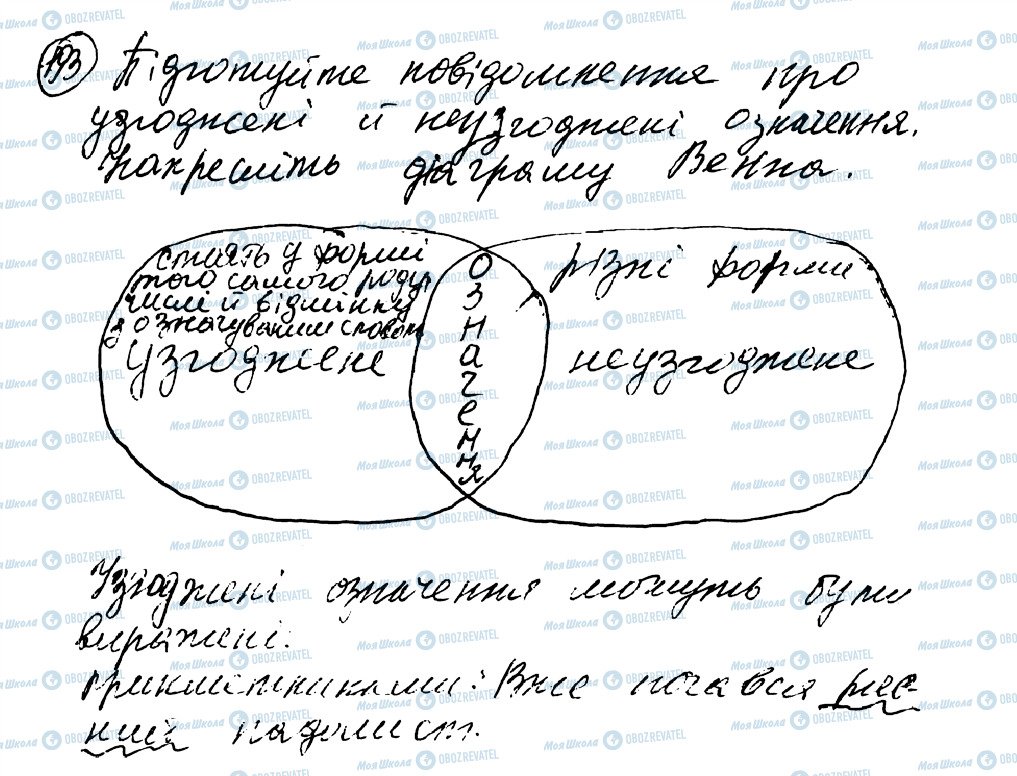 193 Підготуйте повідомлення про
узгоджені й неузгоджені означення.
Накресліть діаграму Венна.
стоять у формі
того самого роду,
числі й відмінку
з означуваним словом
Узгоджене
означення
різні форми
неузгоджене
Узгоджені означення можуть бути
виражені:
прикметниками: Вже почався ряс-
ний падолист.